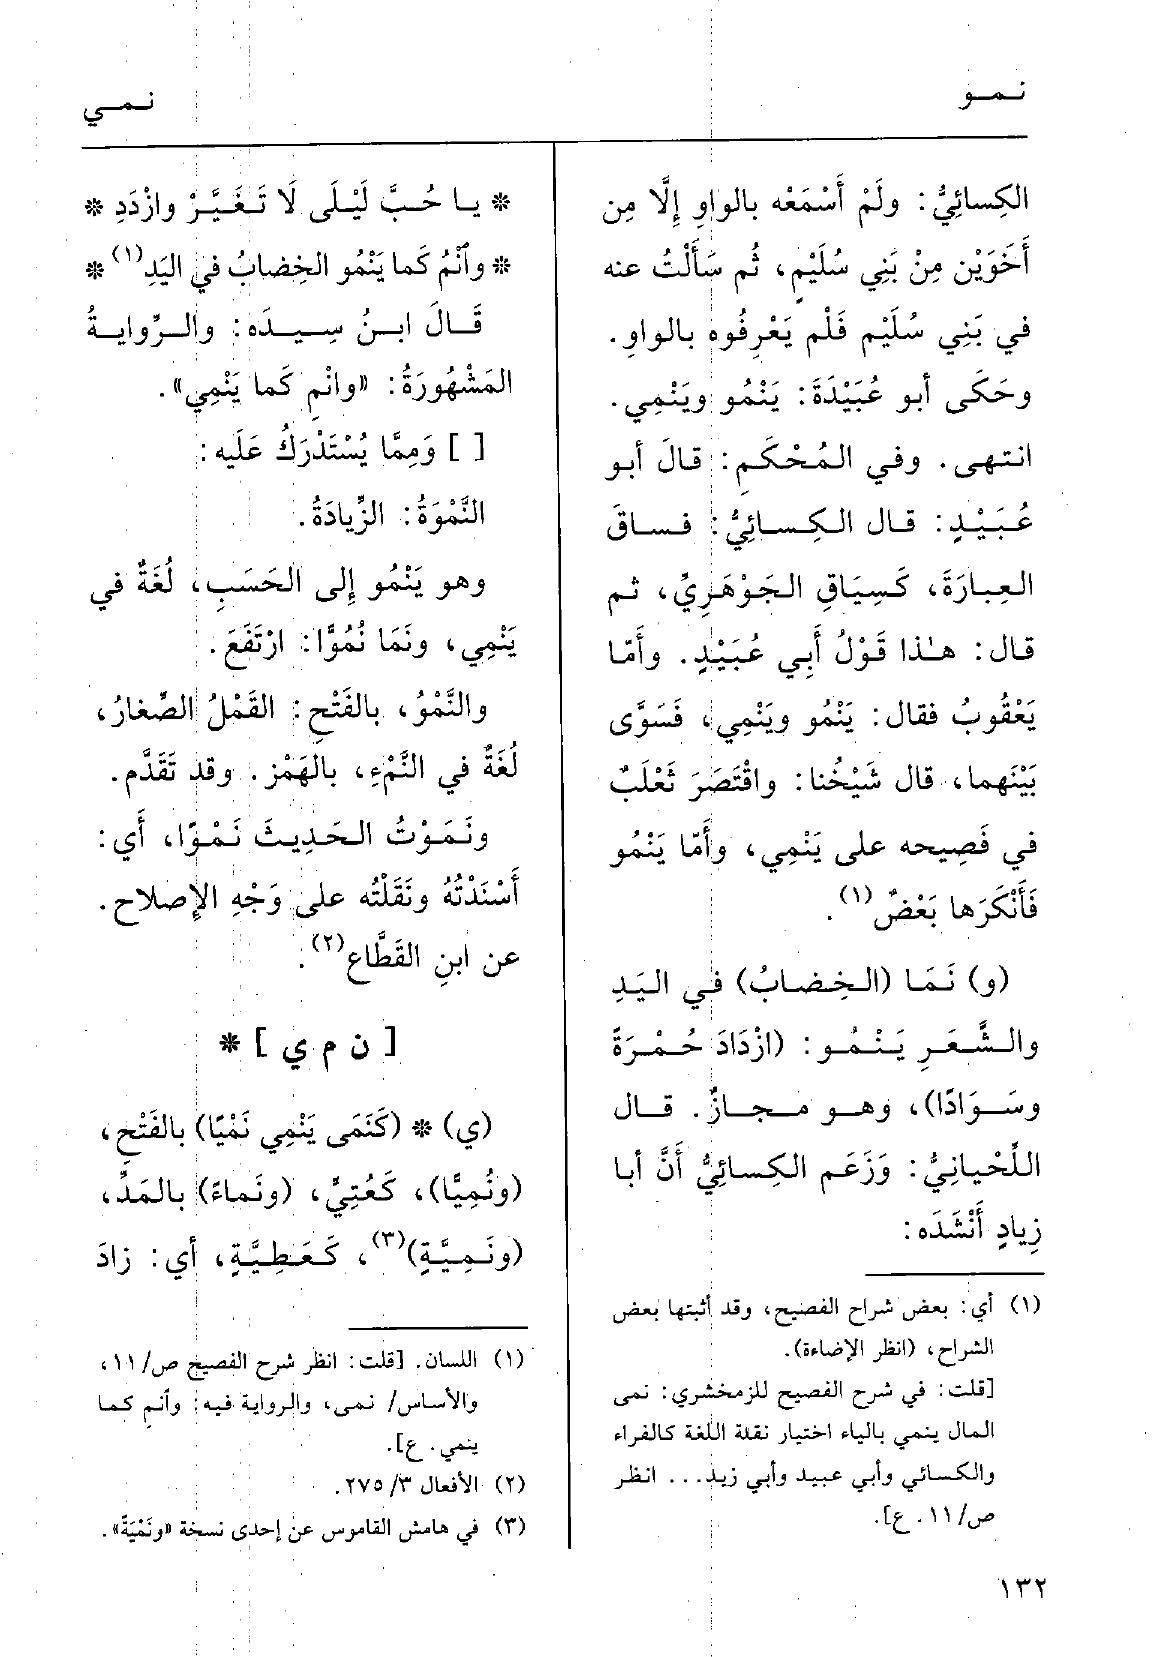 نمو
نمي
الكِسائِيُّ: ولَمْ أَسْمَعْه بالواوِ إِلَّا مِن
أَخَوَيْن مِنْ بَنِي سُلَيْمٍ، ثُم سَأَلْتُ عنه
في بَنِي سُلَيْم فَلْم يَعْرِفُوه بالواوِ.
وحَكَى أبو عُبَيْدَةَ: يَنْمُو ويَنْمِي.
انتهى. وفي المُحْكَمِ: قالَ أبو
عُبَيْدٍ: قال الكِسائِيُّ: فساقَ
العِبارَةَ، كَسِيَاقِ الجَوْهَرِيِّ، ثم
قال: هٰذا قَوْلُ أَبِي عُبَيْدٍ. وأَمّا
يَعْقُوبُ فقال: يَنْمُو ويَنْمِي، فَسَوَّى
بَيْنَهما، قال شَيْخُنا: واقْتَصَرَ ثَعْلَبٌ
في فَصِيحه على يَنْمِي، وأَمّا يَنْمُو
فَأَنْكَرَها بَعْضٌ(١).
(و) نَمَا (الخِضابُ) في اليَدِ
والشَّعَرِ يَنْمُو: (ازْدَادَ حُمْرَةً
وسَوَادًا)، وهو مجازٌ. قال
اللِّحْيانِيُّ: وَزَعَم الكِسائِيُّ أَنَّ أبا
زِيادٍ أَنْشَدَه:
(١) أي: بعض شراح الفصيح، وقد أثبتها بعض
الشراح، (انظر الإضاءة).
[قلت: في شرح الفصيح للزمخشري: نمى
المال ينمي بالياء اختيار نقلة اللغة كالفراء
والكسائي وأبي عبيد وأبي زيد... انظر
ص/١١. ع].
* يا حُبَّ لَيْلَى لَا تَغَيَّرْ وازْدَدِ *
* وٱنْمُ كَما يَنْمُو الخِضابُ في اليَدِ(١) *
قَالَ ابنُ سِيدَه: والرِّوايةُ
المَشْهُورَةُ: «وانْمِ كَما يَنْمِي».
[ ] وَمِمَّا يُسْتَدْرَكُ عَلَيه:
النَّمْوَةُ: الزِّيادَةُ.
وهو يَنْمُو إِلى الحَسَبِ، لُغَةٌ في
يَنْمِي، ونَمَا نُمُوًّا: ارْتَفَعَ.
والنَّمْوُ، بالفَتْحِ: القَمْلُ الصِّغارُ،
لُغَةٌ في النَّمْءِ، بالهَمْز. وقد تَقَدَّم.
ونَمَوْتُ الحَدِيثَ نَمْوًا، أَي:
أَسْنَدْتُهُ ونَقَلْتُه على وَجْهِ الإِصلاح.
عن ابنِ القَطَّاع(٢).
[ ن م ي ] *
(ي) * (كَنَمَى يَنْمِي نَمْيًا) بالفَتْحِ،
(ونُمِيًّا)، كَعُتِيٍّ، (ونَماءً) بالمَدِّ،
(ونَمِيَّةٍ)(٣)، كَعَطِيَّةٍ، أي: زادَ
(١) اللسان. [قلت: انظر شرح الفصيح ص/١١،
والأساس/ نمى، والرواية فيه: وأنمِ كما
ينمي. ع].
(٢) الأفعال ٣/ ٢٧٥.
(٣) في هامش القاموس عن إحدى نسخة «ونَمْيَةً».
١٣٢